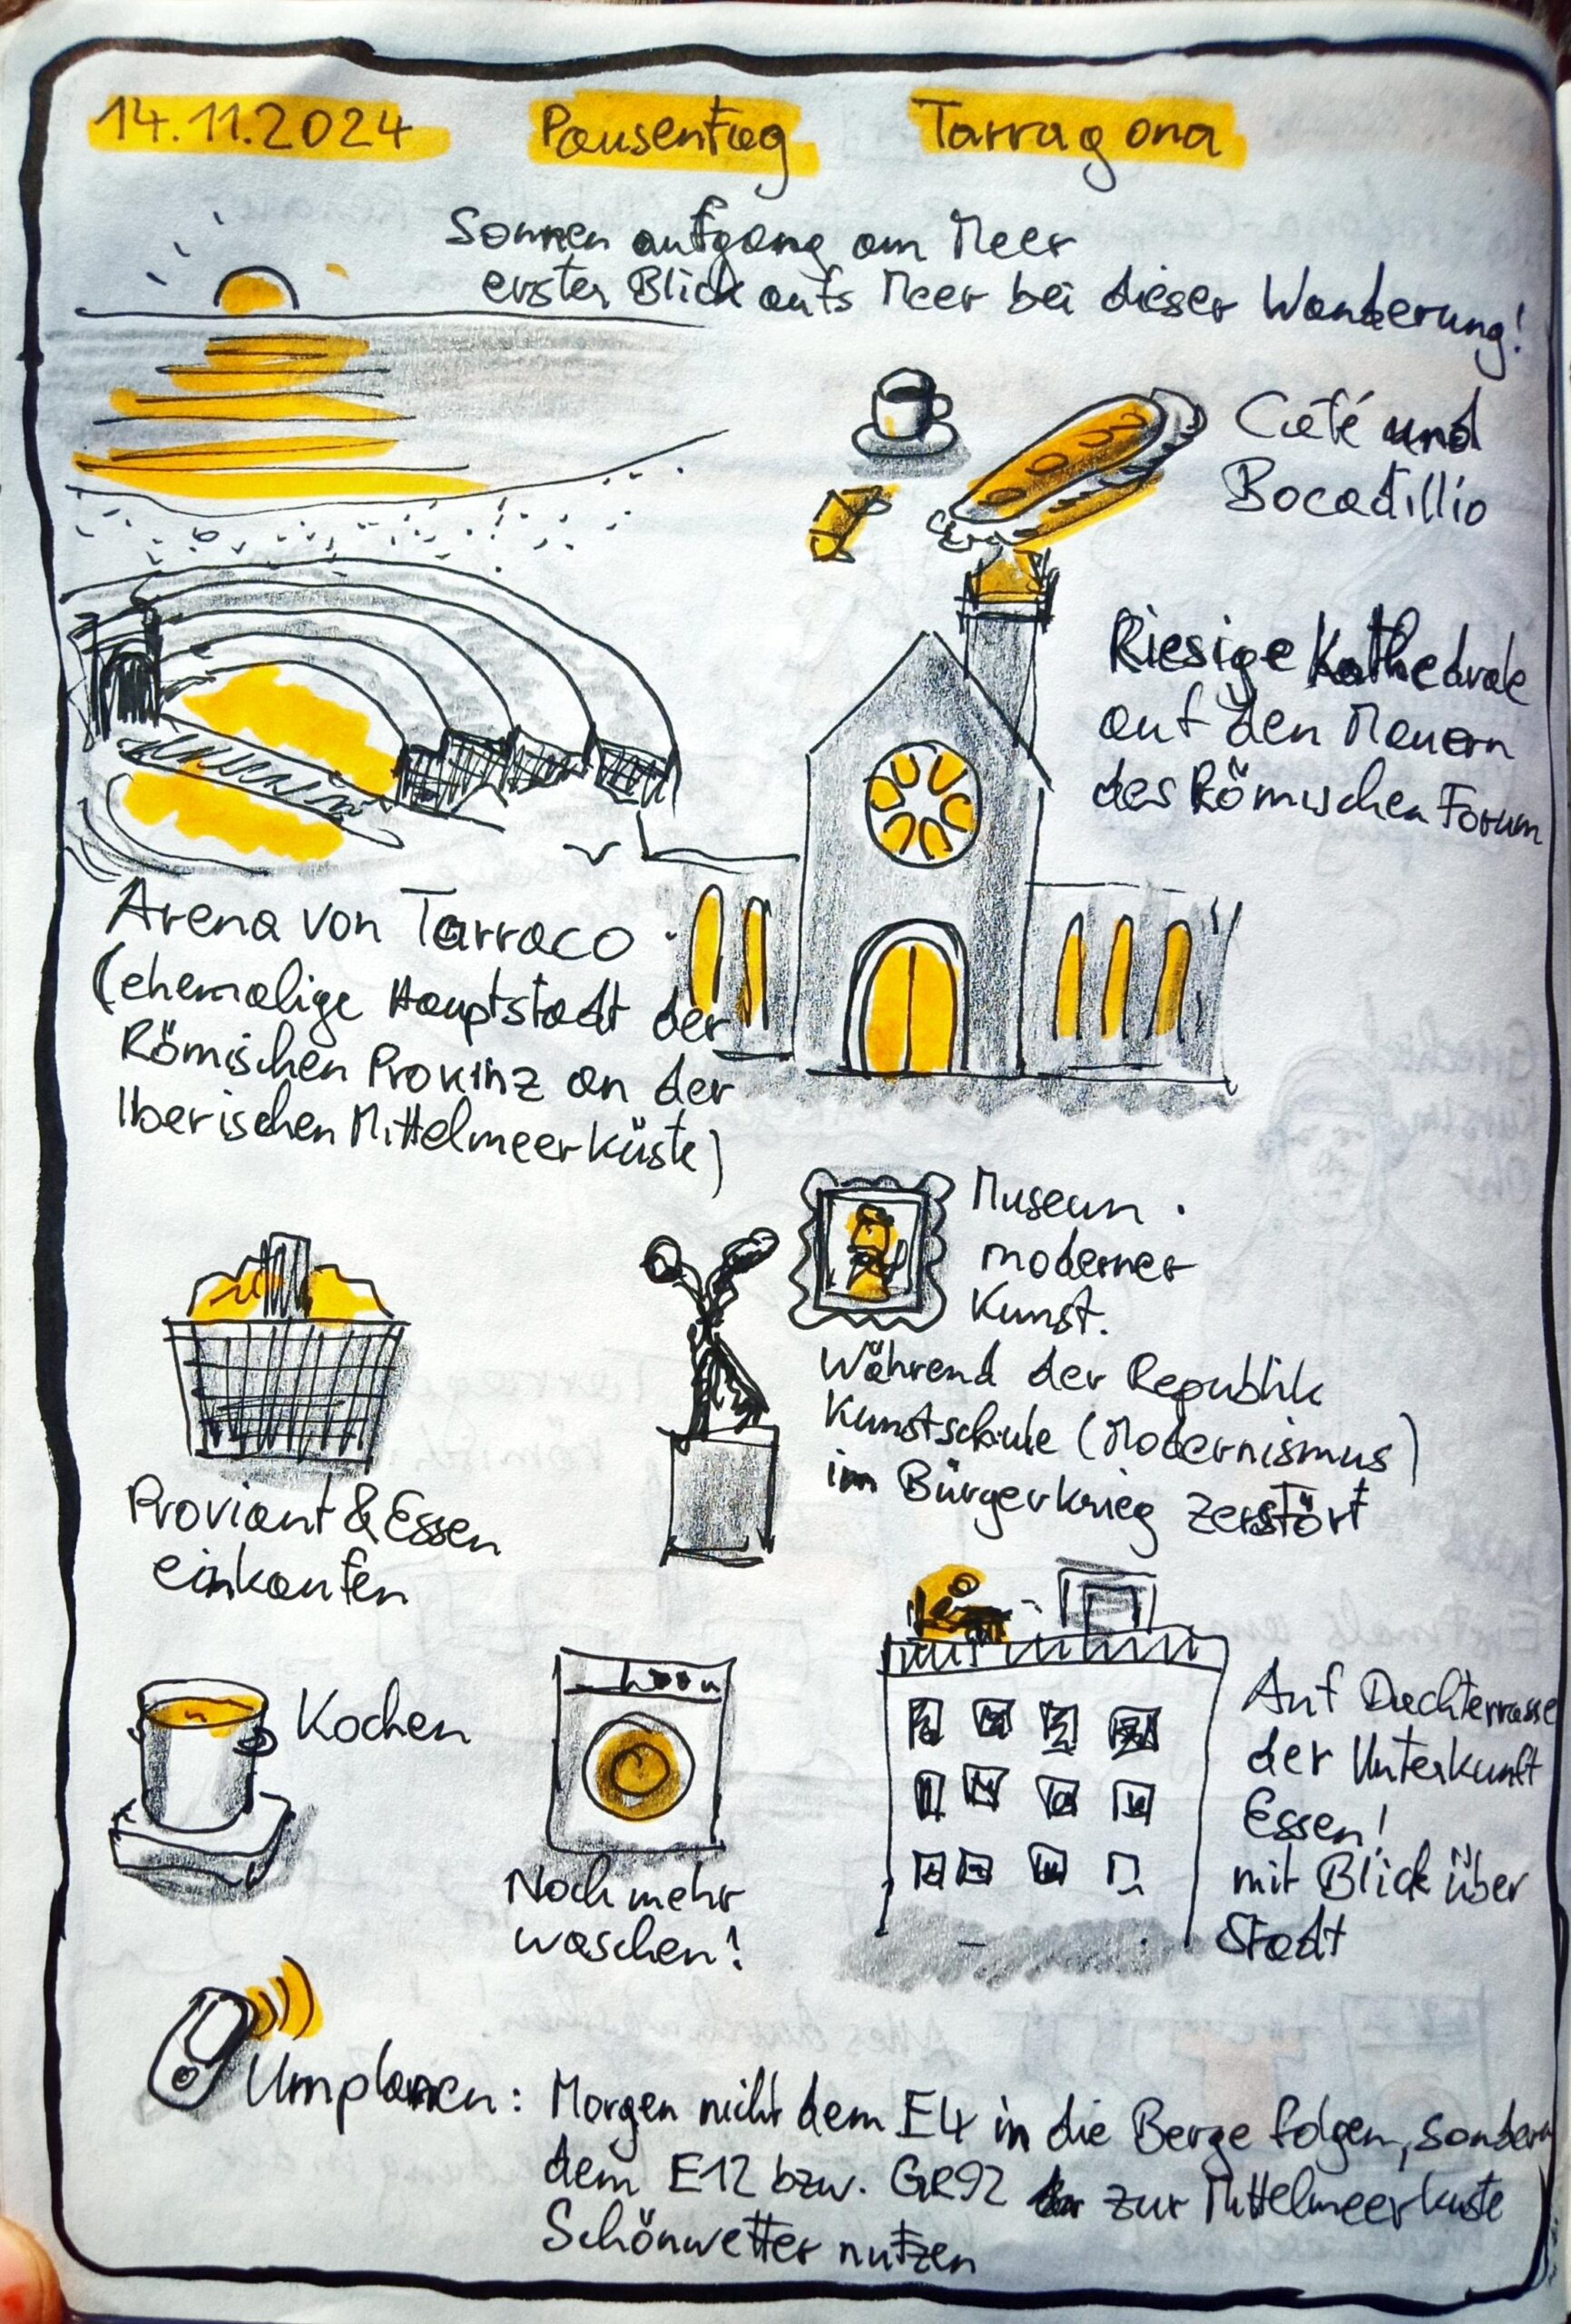 14.11.2024 Pausentag Tarragona
Sonnenaufgang am Meer
erster Blick aufs Meer bei dieser Wanderung!
Café und
Bocadillio
Riesige Kathedrale
auf den Mauern
des Römischen Forum
Arena von Tarraco
(ehemalige Hauptstadt der
Römischen Provinz an der
Iberischen Mittelmeerküste)
Museum
moderner
Kunst.
Während der Republik
Kunstschule (Modernismus)
im Bürgerkrieg zerstört
Proviant & Essen
einkaufen
Kochen
Noch mehr
waschen!
Auf Dachterrasse
der Unterkunft
Essen!
mit Blick über
Stadt
Umplanen: Morgen nicht dem E4 in die Berge folgen, sondern
dem E12 bzw. GR92 zur Mittelmeerküste
Schönwetter nutzen